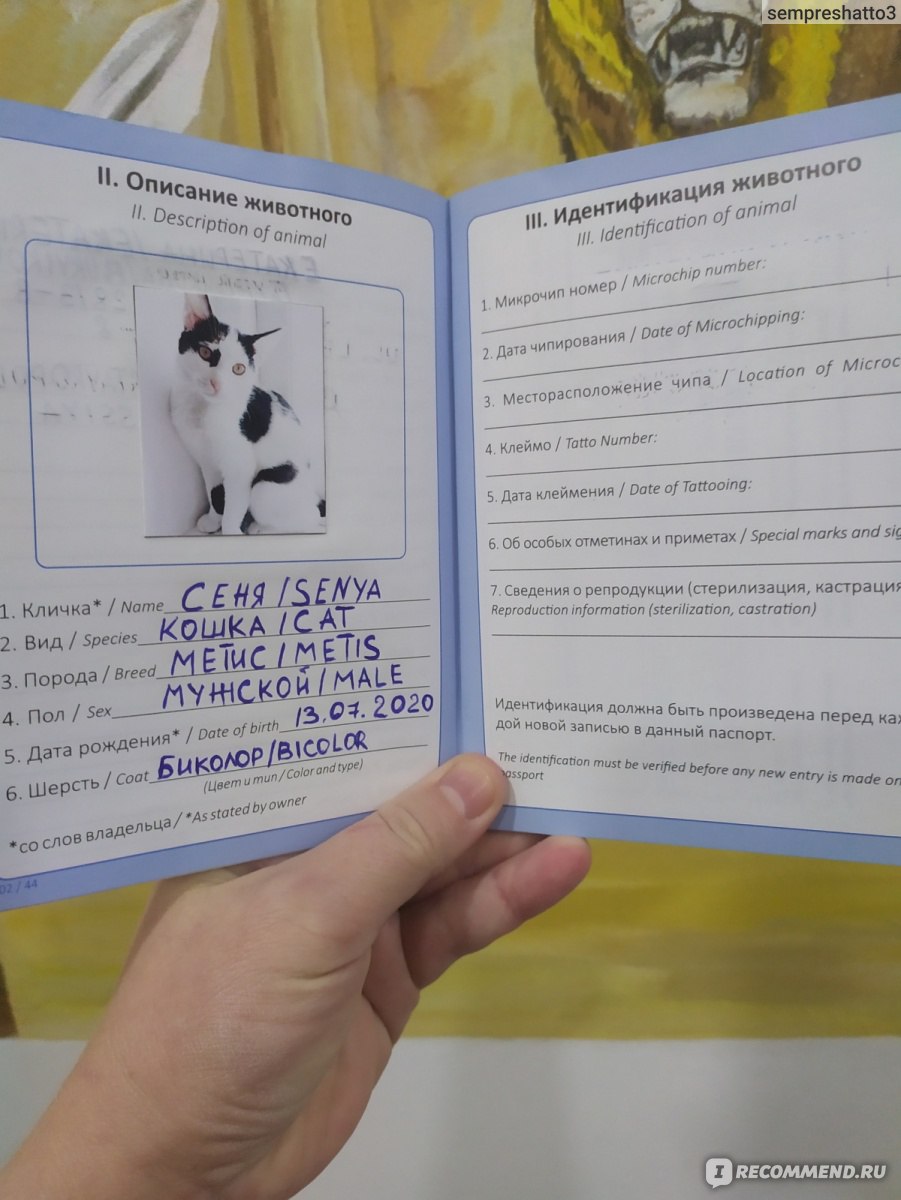 sempreshatto3
II. Описание животного
II. Description of animal
1. Кличка* / Name СЕНЯ / SENYA
2. Вид / Species КОШКА / CAT
3. Порода / Breed МЕТИС / METIS
4. Пол / Sex МУЖСКОЙ / MALE
5. Дата рождения* / Date of birth 13.07.2020
6. Шерсть / Coat БИКОЛОР/BICOLOR
(Цвет и тип / Color and type)
*со слов владельца / *As stated by owner
02 / 44
III. Идентификация животного
III. Identification of animal
1. Микрочип номер / Microchip number:
2. Дата чипирования / Date of Microchipping:
3. Месторасположение чипа / Location of Microc
4. Клеймо / Tatto Number:
5. Дата клеймения / Date of Tattooing:
6. Об особых отметинах и приметах / Special marks and sig
7. Сведения о репродукции (стерилизация, кастрация
Reproduction information (sterilization, castration)
Идентификация должна быть произведена перед каж
дой новой записью в данный паспорт.
The identification must be verified before any new entry is made on
passport
IRECOMMEND.RU